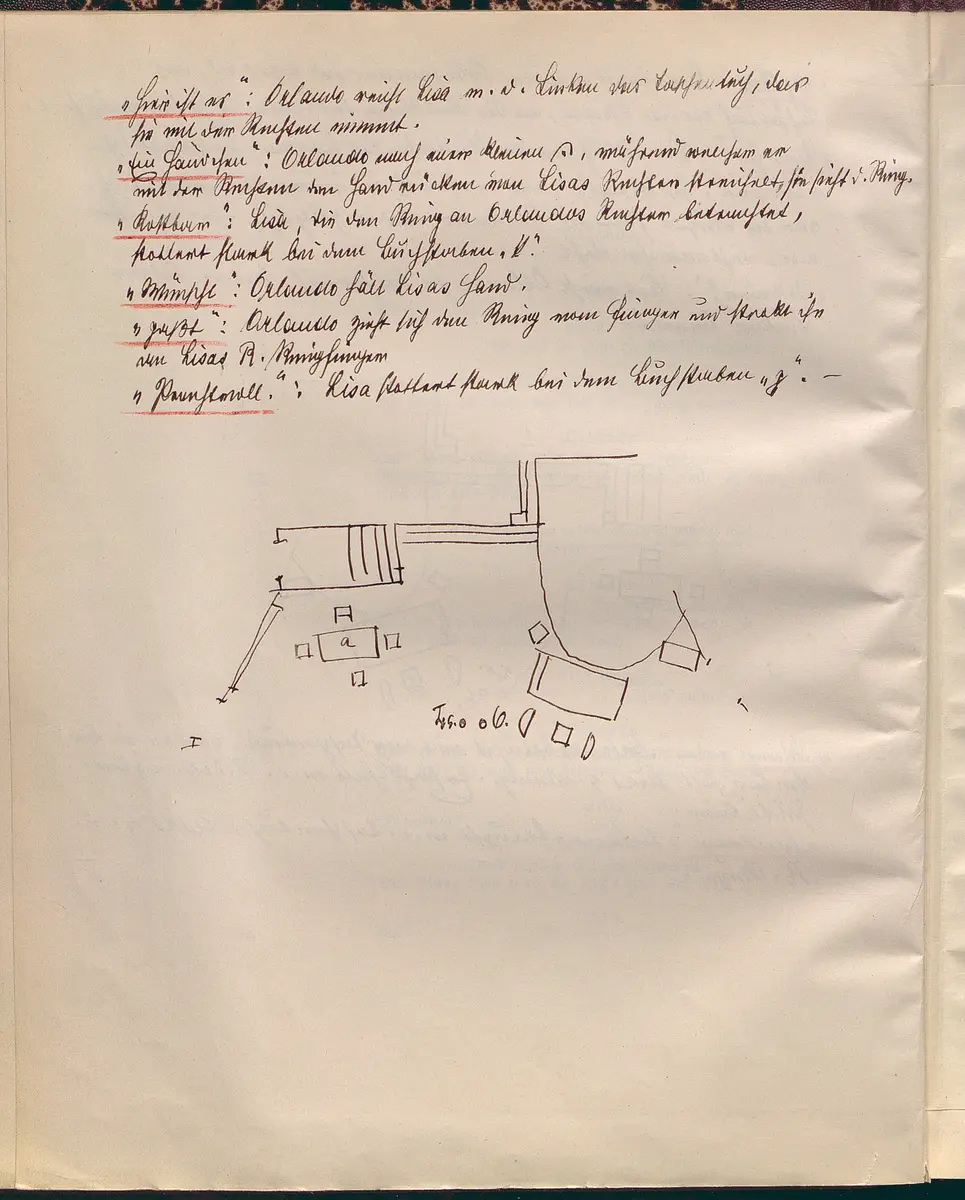 „Hier ist es“: Orlando reicht Lisa m. d. Linken das Taschentuch, das
sie mit der Rechten nimmt.
„Ein Händchen“: Orlando nach einer kleinen, während welcher er
mit der Rechten den Handrücken von Lisas Rechten streichelt, sie sieht d. Ring.
„Kostbar“: Lisa, die den Ring an Orlandos Rechter betrachtet,
stottert stark bei dem Buchstaben „K“.
„Wünscht“: Orlando hält Lisas Hand.
„paßt“: Orlando zieht sich den Ring vom Finger und steckt ihn
an Lisas R. Ringfinger
„Prachtvoll.“: Lisa stottert stark bei dem Buchstaben „p“. –
a
I